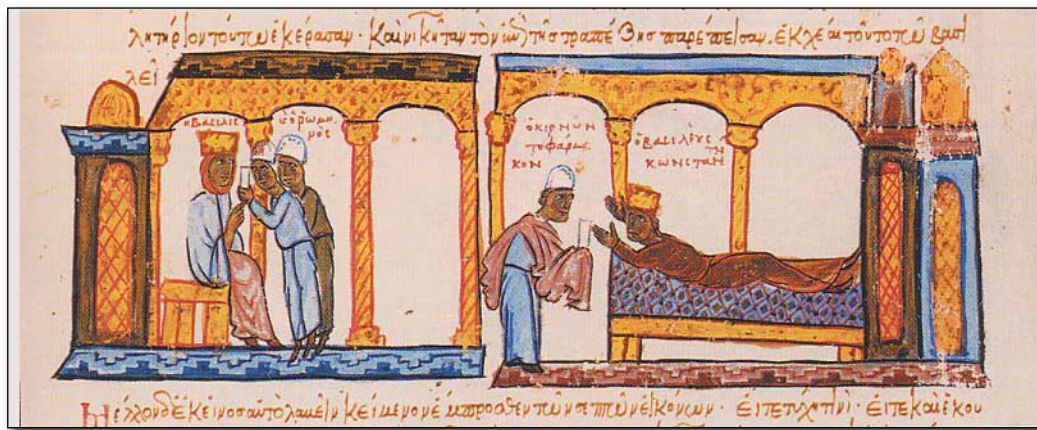 λητήριον τούτω ἐκέρασαν · Καὶ νικήταν τὸν τῆς τραπέζης παρέπεισαν. ἐκχέαι τοῦτο τῷ βασι
λεῖ
ὁ βασιλεὺς
ὁ ρωμα
νός
ὁ κιρνῶν
τὸ φάρμα
κον
ὁ βασιλεὺς
κωνσταντ
δὲ ἐκεῖνος αὐτὸ λαβεῖν κείμενον ἔμπροσθεν τῶν σεπτῶν εἰκόνων · εἴτε τύχη τινὶ · εἴτε καὶ ἑκου